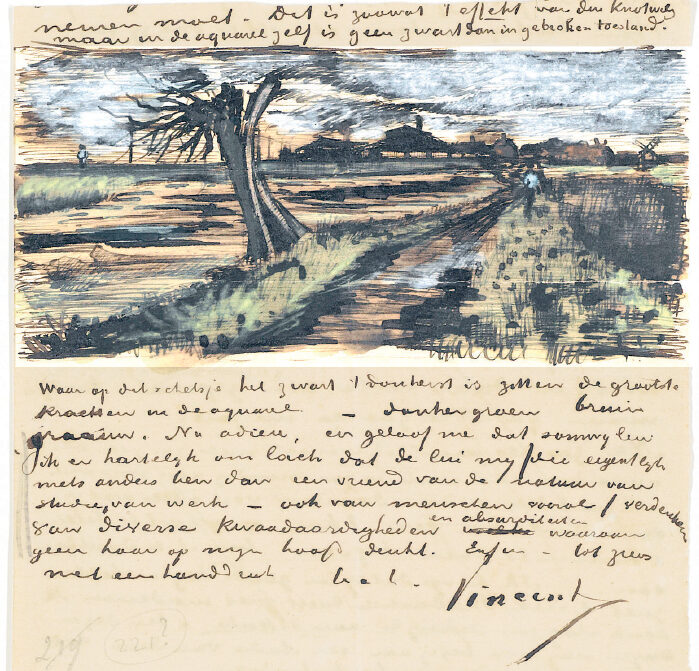 nemen moet. Dit is zoowat 't effekt van den Knotwilg
maar in de aquarel zelf is geen zwart dan in gebroken toestand.
Waar op dit schetsje het zwart 't donkerst is zitten de grootste
krachten in de aquarel — donkergroen bruin
graauw. Nu adieu, en geloof me dat somwylen
ik er hartelyk om lach dat de lui my (die eigentlyk
niets anders ben dan een vriend van de natuur van
studie, van werk — ook van menschen vooral) verdenken
van diverse kwaadaardigheden en absurditeiten waaraan
geen haar op myn hoofd denkt. Enfin — tot ziens
met een handdruk t. à. t.
Vincent
219 (221?)